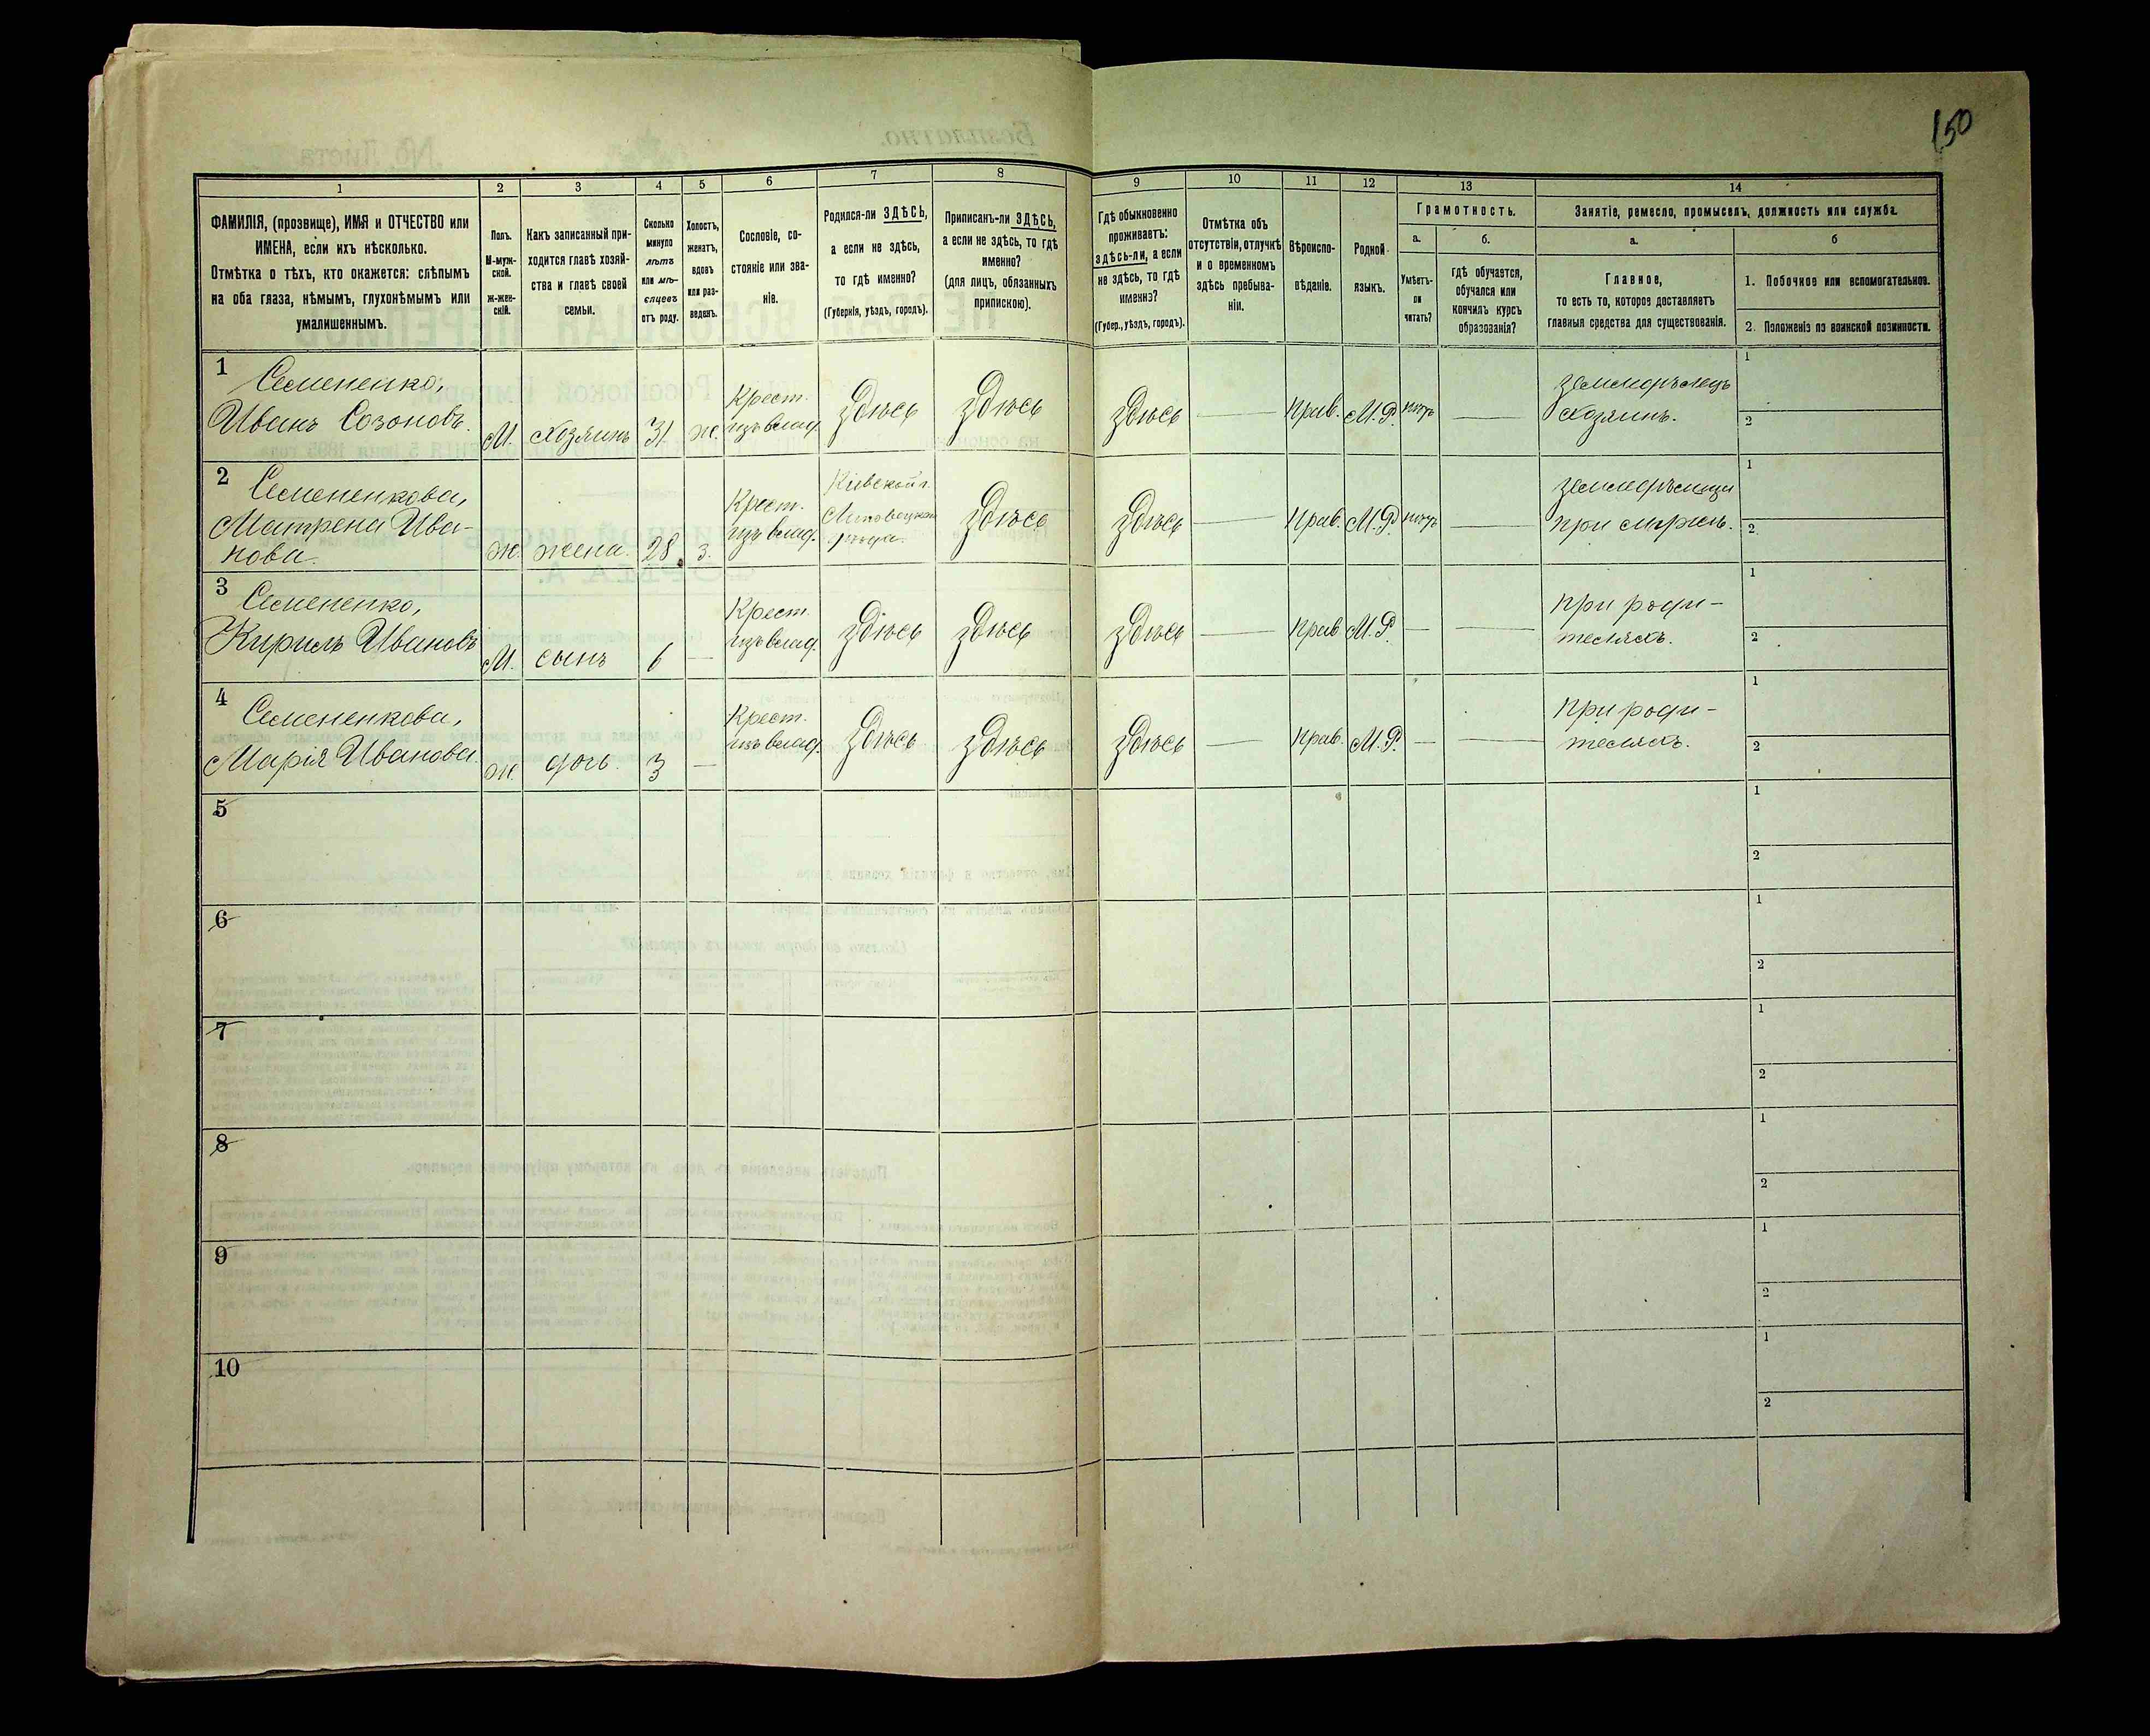 150
1 2 3 4 5 6 7 8 9 10 11 12 13 14
ФАМИЛІЯ, (прозвище), ИМЯ и ОТЧЕСТВО или
ИМЕНА, если ихъ нѣсколько.
Отмѣтка о тѣхъ, кто окажется: слѣпымъ
на оба глаза, нѣмымъ, глухонѣмымъ или
умалишеннымъ.
Полъ.
М-муж-
ской.
Ж-жен-
скій.
Какъ записанный при-
ходится главѣ хозяй-
ства и главѣ своей
семьи.
Сколько
минуло
лѣтъ
или мѣ-
сяцевъ
отъ роду.
Холостъ,
женатъ,
вдовъ
или раз-
веденъ.
Сословіе, со-
стояніе или зва-
ніе.
Родился-ли ЗДѢСЬ,
а если не здѣсь,
то гдѣ именно?
(Губернія, уѣздъ, городъ).
Приписанъ-ли ЗДѢСЬ,
а если не здѣсь, то гдѣ
именно?
(для лицъ, обязанныхъ
припискою).
Гдѣ обыкновенно
проживаетъ:
здѣсь-ли, а если
не здѣсь, то гдѣ
именно?
(Губер., уѣздъ, городъ).
Отмѣтка объ
отсутствіи, отлучкѣ
и о временномъ
здѣсь пребыва-
ніи.
Вѣроиспо-
вѣданіе.
Родной
языкъ.
Грамотность.
а.
Умѣетъ-
ли
читать?
б.
гдѣ обучается,
обучался или
кончилъ курсъ
образованія?
Занятіе, ремесло, промыселъ, должность или служба.
а.
Главное,
то есть то, которое доставляетъ
главныя средства для существованія.
б
1. Побочное или вспомогательное.
2. Положеніе по воинской повинности.
1 Семененко,
Иванъ Созоновъ.
М. хозяинъ 31 ж.
Крест.
изъ влад.
здѣсь здѣсь здѣсь — Прав. М.Р. нѣтъ —
земледѣлецъ
хозяинъ.
1
2
2 Семененкова,
Матрена Ива-
нова.
ж. жена. 28 з.
Крест.
изъ влад.
Кіевской г.
Липовецкаго
уѣзда.
здѣсь здѣсь — Прав. М.Р. нѣтъ —
земледѣлица
при мужѣ.
1
2
3 Семененко,
Кирилъ Ивановъ
М. сынъ 6 —
Крест.
изъ влад.
здѣсь здѣсь здѣсь — Прав М.Р. — —
при роди-
теляхъ.
1
2
4 Семененкова,
Марія Иванова.
ж. дочь. 3 —
Крест.
изъ влад.
здѣсь здѣсь здѣсь — Прав. М.Р. — —
при роди-
теляхъ.
1
2
5
1
2
6
1
2
7
1
2
8
1
2
9
1
2
10
1
2